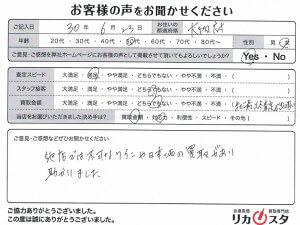 お客様の声をお聞かせください
ご記入日 30年 6月23日 お住いの都道府県
年齢 20代・30代・40代・50代・60代・70代・80代〜 性別 男・女
ご意見・ご感想を弊社ホームページにお客様の声として掲載させて頂いてもよろしいでしょうか? Yes・No
査定スピード 大満足・満足・やや満足・どちらでもない・やや不満・不満・(
スタッフ接客 大満足・満足・やや満足・どちらでもない・やや不満・不満・(
買取金額 大満足・満足・やや満足・どちらでもない・やや不満・不満・(
当店をお選びいただきました決め手は? 買取金額・対応力・利便性・スピード・その他(
ご意見・ご感想などぜひお聞かせください
他店では不可なワインや日本酒の買取があり
助かりました
ご協力ありがとうございました。
この度は誠にありがとうございました。
お酒高価買取専門店
リカスタ